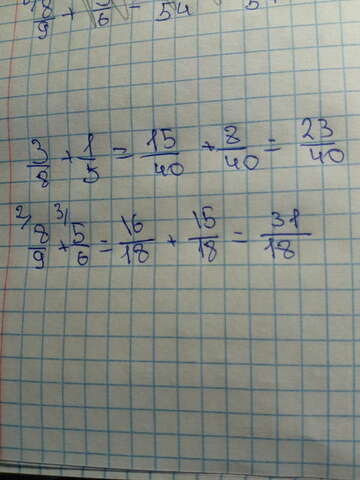 8/9 + 5/6 = 54
3/8 + 1/5 = 15/40 + 8/40 = 23/40
2/ 8/9 + 3/ 5/6 = 16/18 + 15/18 = 31/18